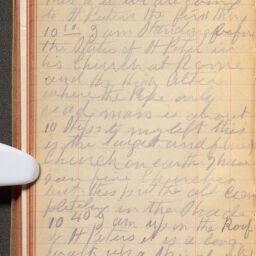 to St Peters the first thing
10 15 I am Standing before
the Statue of St Peter in
his Church at Rome
and the High Alter
where the Pope only
says mass is about
10 steps to my left this
is the largest and finest
Church on earth I have
seen fine Churches
but this put the all Com
pletely in the Shade
10 40 I am up in the Roof
of St Peters it is a long